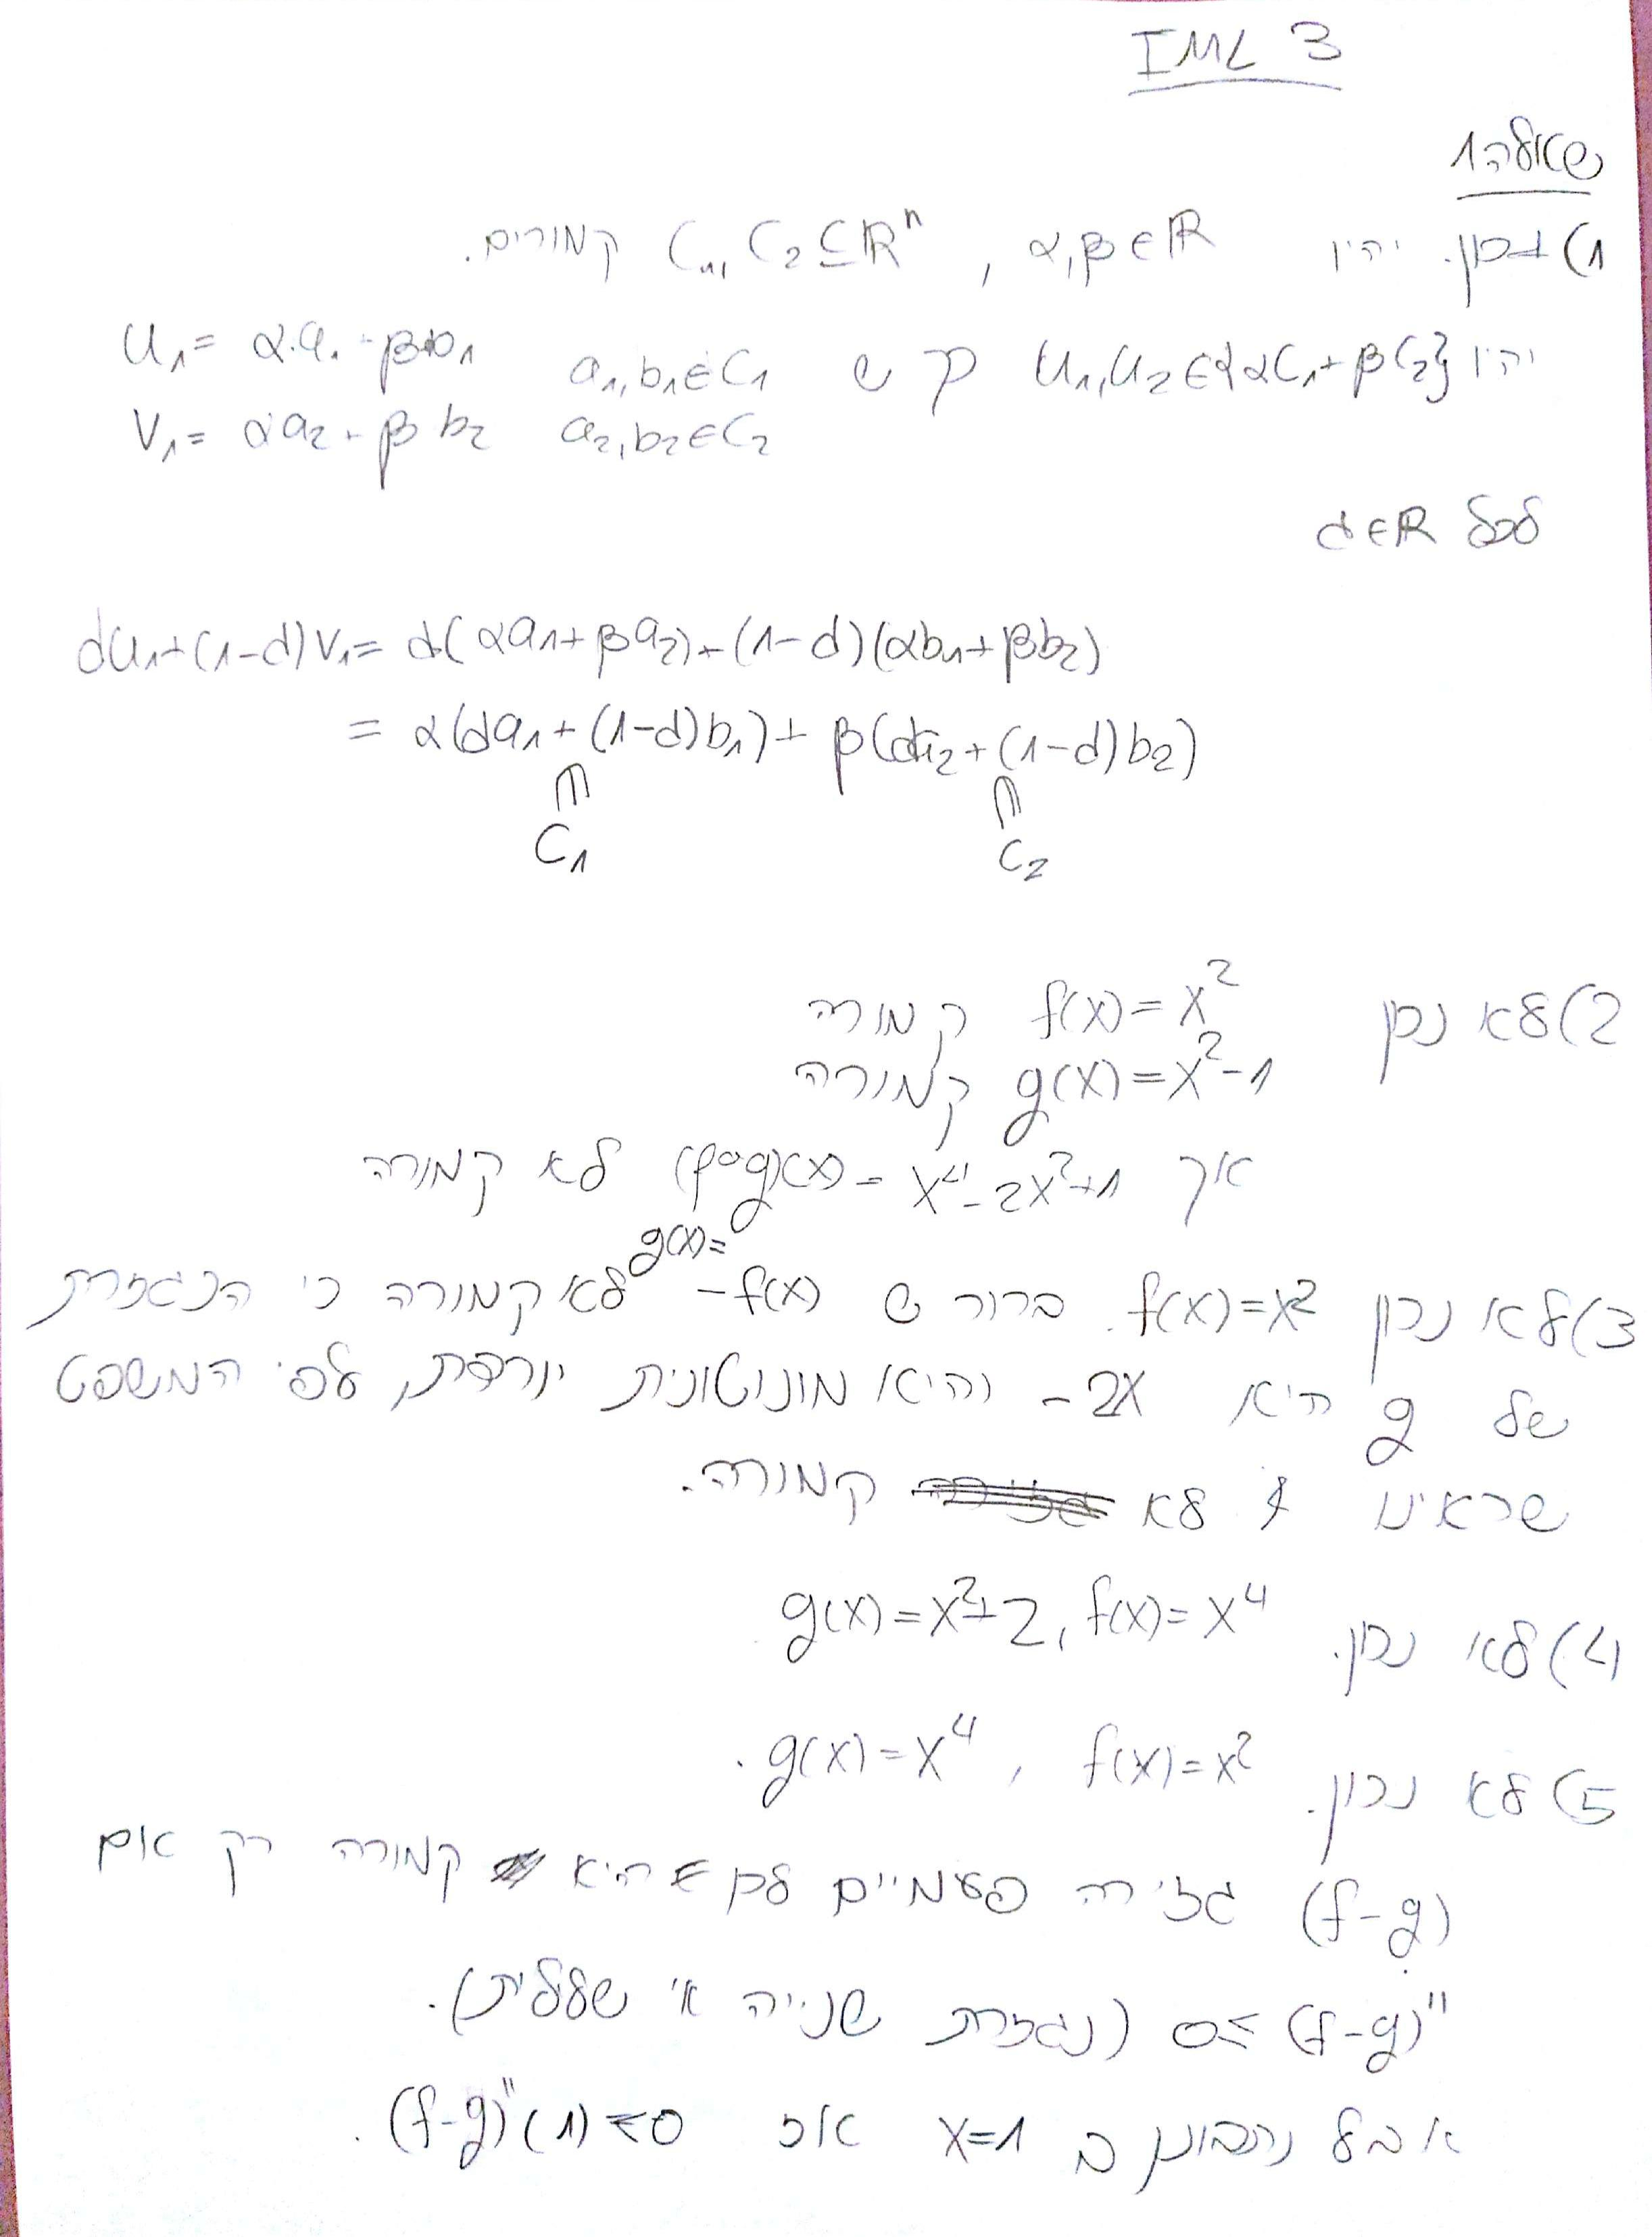 IML 3
שאלה 1
1) נכון. יהיו α,β∈ℝ , C₁, C₂ ⊆ ℝⁿ קמורים.
יהיו u₁,u₂ ∈ {αC₁+βC₂} כך ש a₁,b₁∈C₁ u₁= α·a₁+βb₁
a₂,b₂∈C₂ v₁= αa₂+βb₂
לכל d∈ℝ
du₁+(1-d)v₁= d(αa₁+βa₂)+(1-d)(αb₁+βb₂)
= α(da₁+(1-d)b₁)+β(da₂+(1-d)b₂)
C₁ C₂
2) לא נכון f(x)=x² קמורה
g(x)=x²-1 קמורה
אך (f∘g)(x)= x⁴-2x²+1 לא קמורה
3) לא נכון f(x)=x². ברור ש g(x)= -f(x) לא קמורה כי הנגזרת
של g היא -2x והיא מונוטונית יורדת, לפי המשפט
שראינו לא קמורה.
4) לא נכון. g(x)=x²+2, f(x)=x⁴
5) לא נכון. g(x)=x⁴ , f(x)=x².
(f-g) גזירה פעמיים לכן היא קמורה רק אם
(f-g)'' ≥0 (נגזרת שנייה אי שלילית).
אבל נתבונן ב x=1 אז (f-g)''(1)<0.